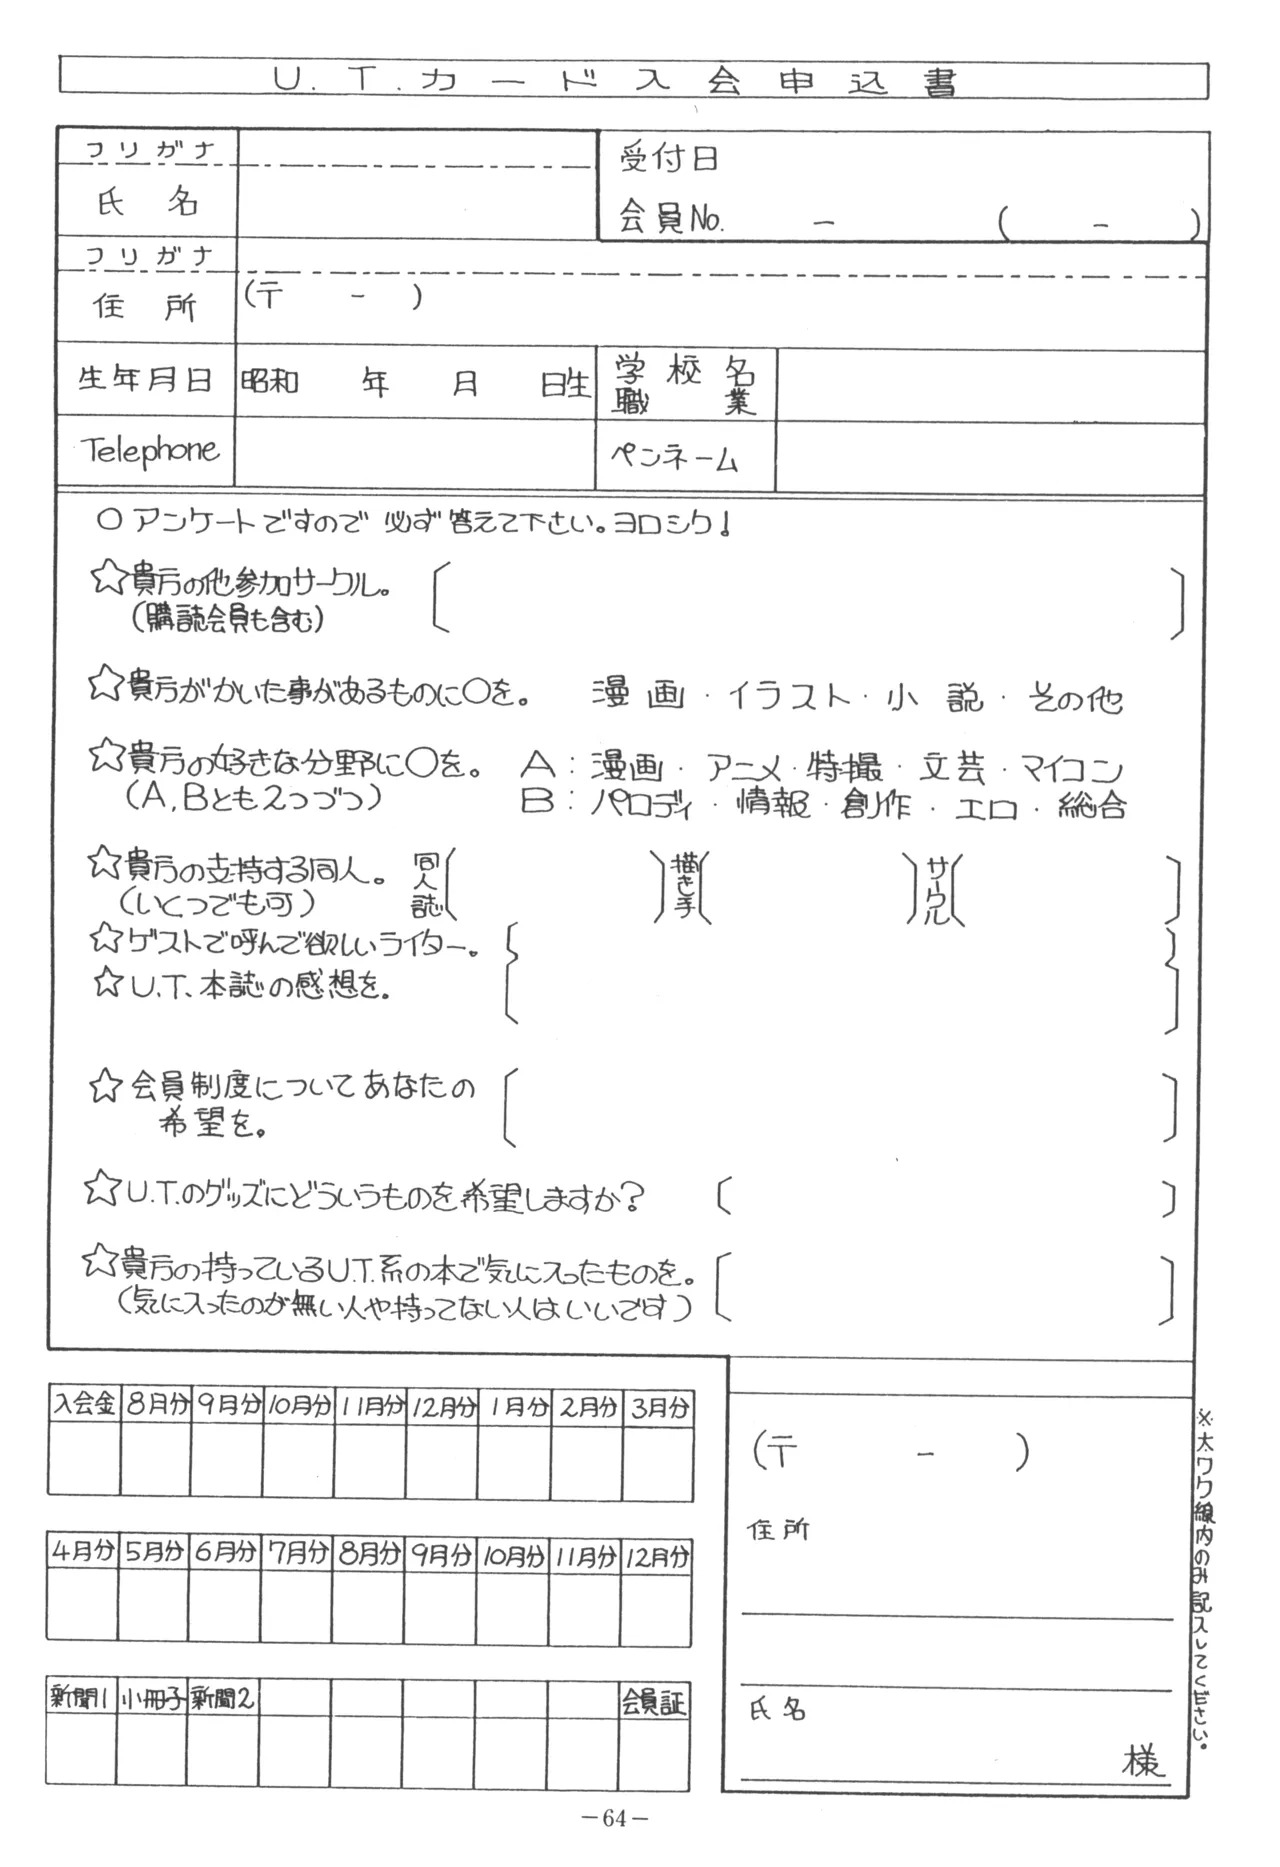 U.T.カード入会申込書
フリガナ
氏名
受付日
会員No. － ( － )
フリガナ
住所
(〒 － )
生年月日
昭和 年 月 日生
学校名
職業
Telephone
ペンネーム
○アンケートですので必ず答えて下さい。ヨロシク!
☆貴方の他参加サークル。
(購読会員も含む)
☆貴方がかいた事があるものに○を。 漫画・イラスト・小説・その他
☆貴方の好きな分野に○を。 A:漫画・アニメ・特撮・文芸・マイコン
(A,Bとも2つづつ) B:パロディ・情報・創作・エロ・総合
☆貴方の支持する同人。 同人誌( ) 描き手( ) サークル( )
(いくつでも可)
☆ゲストで呼んで欲しいライター。
☆U.T.本誌の感想を。
☆会員制度についてあなたの
希望を。
☆U.T.のグッズにどういうものを希望しますか?
☆貴方の持っているU.T.系の本で気に入ったものを。
(気に入ったのが無い人や持ってない人はいいです)
入会金 8月分 9月分 10月分 11月分 12月分 1月分 2月分 3月分
4月分 5月分 6月分 7月分 8月分 9月分 10月分 11月分 12月分
新聞1 小冊子 新聞2 会員証
(〒 － )
住所
氏名
様
※太ワク線内のみ記入してください。
－64－